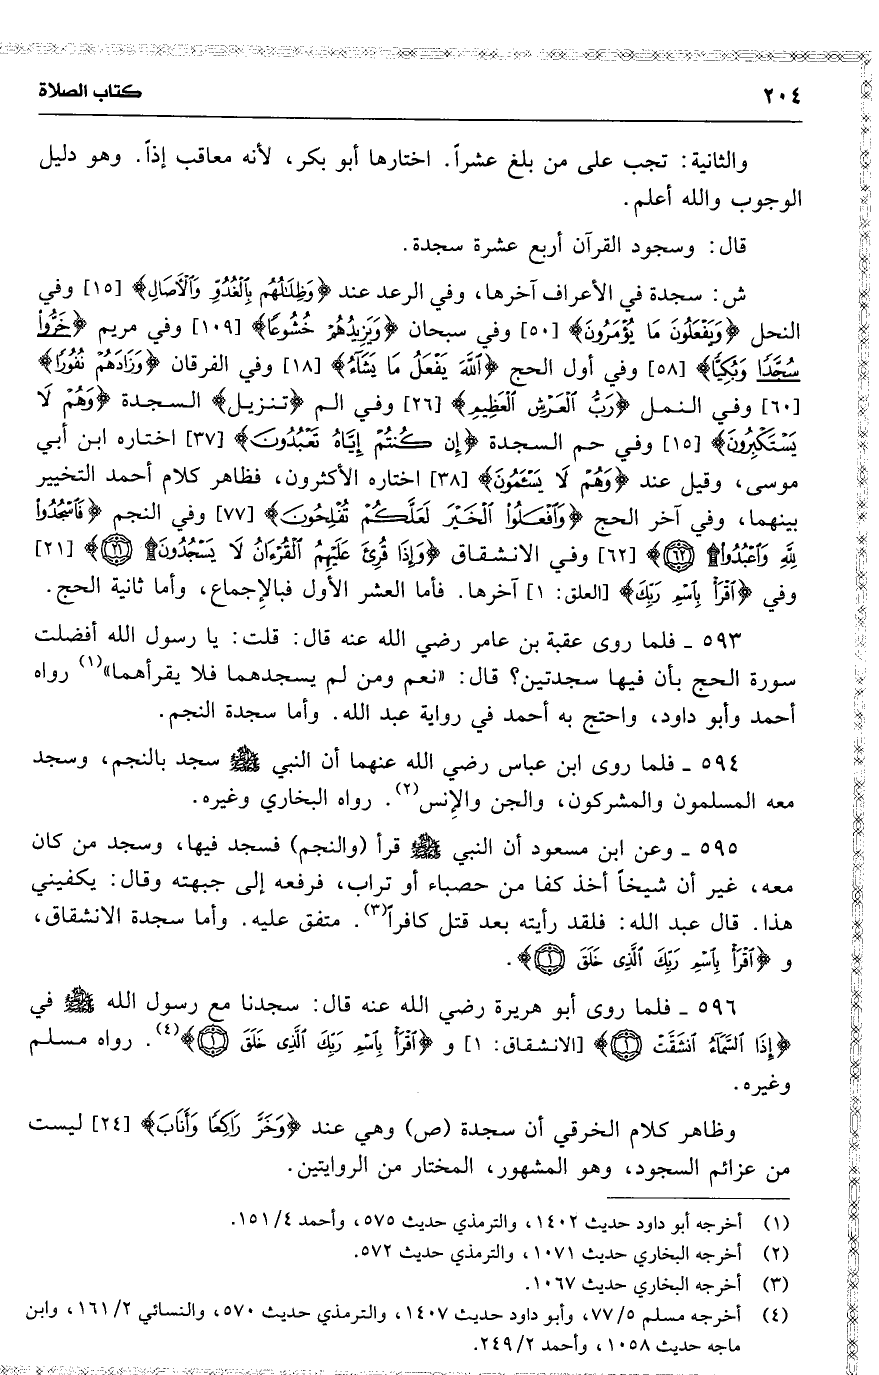 ٢٠٤ كتاب الصلاة
والثانية: تجب على من بلغ عشراً. اختارها أبو بكر، لأنه معاقب إذاً. وهو دليل
الوجوب والله أعلم.
قال: وسجود القرآن أربع عشرة سجدة.
ش: سجدة في الأعراف آخرها، وفي الرعد عند ﴿وَظِلَٰلُهُم بِٱلْغُدُوِّ وَٱلْءَاصَالِ﴾ [١٥] وفي
النحل ﴿وَيَفْعَلُونَ مَا يُؤْمَرُونَ﴾ [٥٠] وفي سبحان ﴿وَيَزِيدُهُمْ خُشُوعًا﴾ [١٠٩] وفي مريم ﴿خَرُّوا۟
سُجَّدًا وَبُكِيًّا﴾ [٥٨] وفي أول الحج ﴿ٱللَّهَ يَفْعَلُ مَا يَشَآءُ﴾ [١٨] وفي الفرقان ﴿وَزَادَهُمْ نُفُورًا﴾
[٦٠] وفي النمل ﴿رَبُّ ٱلْعَرْشِ ٱلْعَظِيمِ﴾ [٢٦] وفي الم ﴿تنزيل﴾ السجدة ﴿وَهُمْ لَا
يَسْتَكْبِرُونَ﴾ [١٥] وفي حم السجدة ﴿إِن كُنتُمْ إِيَّاهُ تَعْبُدُونَ﴾ [٣٧] اختاره ابن أبي
موسى، وقيل عند ﴿وَهُمْ لَا يَسْـَٔمُونَ﴾ [٣٨] اختاره الأكثرون، فظاهر كلام أحمد التخيير
بينهما، وفي آخر الحج ﴿وَٱفْعَلُوا۟ ٱلْخَيْرَ لَعَلَّكُمْ تُفْلِحُونَ﴾ [٧٧] وفي النجم ﴿فَٱسْجُدُوا۟
لِلَّهِ وَٱعْبُدُوا۟ ۩ ٦٢﴾ [٦٢] وفي الانشقاق ﴿وَإِذَا قُرِئَ عَلَيْهِمُ ٱلْقُرْءَانُ لَا يَسْجُدُونَ ۩ ٢١﴾ [٢١]
وفي ﴿ٱقْرَأْ بِٱسْمِ رَبِّكَ﴾ [العلق: ١] آخرها. فأما العشر الأول فبالإجماع، وأما ثانية الحج.
٥٩٣ ـ فلما روى عقبة بن عامر رضي الله عنه قال: قلت: يا رسول الله أفضلت
سورة الحج بأن فيها سجدتين؟ قال: «نعم ومن لم يسجدهما فلا يقرأهما»(١) رواه
أحمد وأبو داود، واحتج به أحمد في رواية عبد الله. وأما سجدة النجم.
٥٩٤ ـ فلما روى ابن عباس رضي الله عنهما أن النبي ﷺ سجد بالنجم، وسجد
معه المسلمون والمشركون، والجن والإنس(٢). رواه البخاري وغيره.
٥٩٥ ـ وعن ابن مسعود أن النبي ﷺ قرأ (والنجم) فسجد فيها، وسجد من كان
معه، غير أن شيخاً أخذ كفا من حصباء أو تراب، فرفعه إلى جبهته وقال: يكفيني
هذا. قال عبد الله: فلقد رأيته بعد قتل كافراً(٣). متفق عليه. وأما سجدة الانشقاق،
و ﴿ٱقْرَأْ بِٱسْمِ رَبِّكَ ٱلَّذِى خَلَقَ ١﴾.
٥٩٦ ـ فلما روى أبو هريرة رضي الله عنه قال: سجدنا مع رسول الله ﷺ في
﴿إِذَا ٱلسَّمَآءُ ٱنشَقَّتْ ١﴾ [الانشقاق: ١] و ﴿ٱقْرَأْ بِٱسْمِ رَبِّكَ ٱلَّذِى خَلَقَ ١﴾(٤). رواه مسلم
وغيره.
وظاهر كلام الخرقي أن سجدة (ص) وهي عند ﴿وَخَرَّ رَاكِعًا وَأَنَابَ﴾ [٢٤] ليست
من عزائم السجود، وهو المشهور، المختار من الروايتين.
(١) أخرجه أبو داود حديث ١٤٠٢، والترمذي حديث ٥٧٥، وأحمد ٤/ ١٥١.
(٢) أخرجه البخاري حديث ١٠٧١، والترمذي حديث ٥٧٢.
(٣) أخرجه البخاري حديث ١٠٦٧.
(٤) أخرجه مسلم ٥/ ٧٧، وأبو داود حديث ١٤٠٧، والترمذي حديث ٥٧٠، والنسائي ٢/ ١٦١، وابن
ماجه حديث ١٠٥٨، وأحمد ٢/ ٢٤٩.